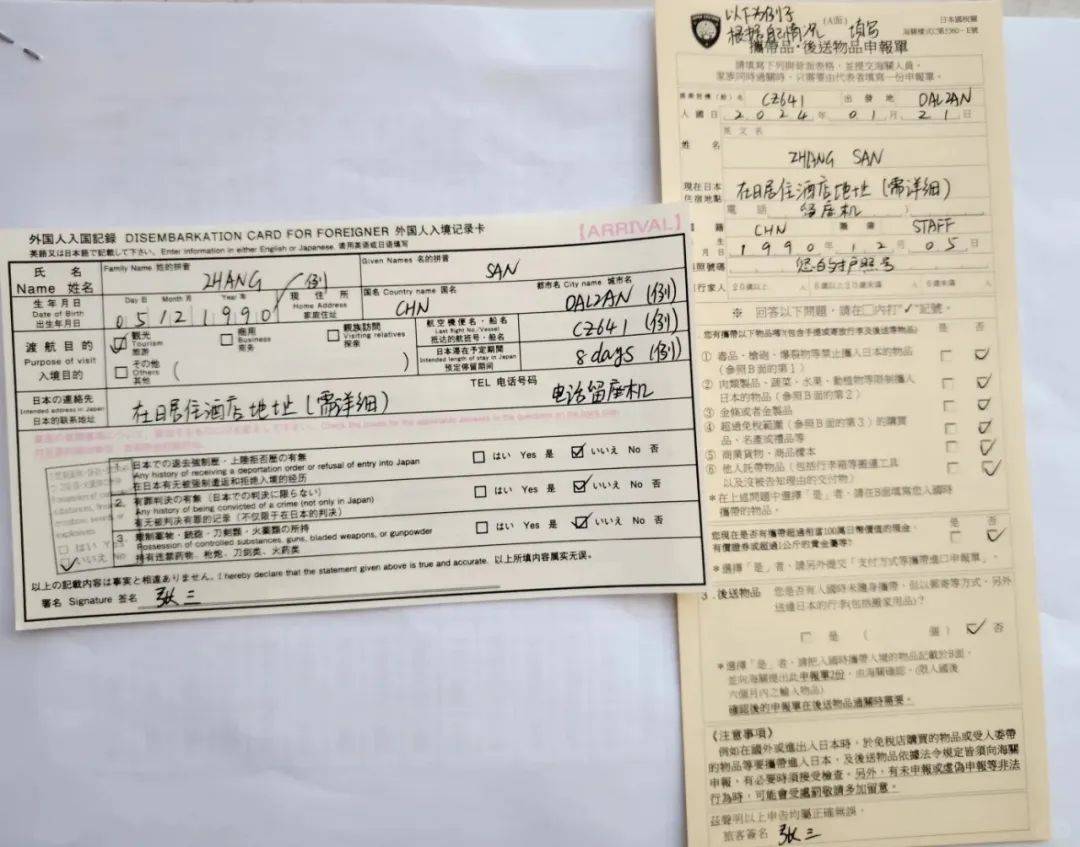 外国人入国記録 DISEMBARKATION CARD FOR FOREIGNER 外国人入境记录卡
【ARRIVAL】
英語又は日本語で記載して下さい。Enter information in either English or Japanese. 请用英语或日语填写
氏 名
Name 姓名
Family Name 姓的拼音
ZHANG (例)
Given Names 名的拼音
SAN
生年月日
Date of Birth
出生年月日
Day 日 Month 月 Year 年
05 12 1990
現住所
Home Address
家庭住址
国名 Country name 国名
CHN
都市名 City name 城市名
DALZAN (例)
渡航目的
Purpose of visit
入境目的
観光
Tourism
旅游
商用
Business
商务
親族訪問
Visiting relatives
探亲
その他
Others
其他
( )
航空機便名・船名
Last flight No./Vessel
抵达的航班号・船名
CZ641 (例)
日本滞在予定期間
Intended length of stay in Japan
预定停留期间
8 days (例)
日本の連絡先
Intended address in Japan
日本的联系地址
在日居住酒店地址 (需详细)
TEL 电话号码
电话留座机
1. 日本での退去強制歴・上陸拒否歴の有無
Any history of receiving a deportation order or refusal of entry into Japan
在日本有无被强制遣返和拒绝入境的经历
はい Yes 是 いいえ No 否
2. 有罪判決の有無(日本での判決に限らない)
Any history of being convicted of a crime (not only in Japan)
有无被判决有罪的记录(不仅限于在日本的判决)
はい Yes 是 いいえ No 否
3. 規制薬物・銃砲・刀剣類・火薬類の所持
Possession of controlled substances, guns, bladed weapons, or gunpowder
持有违禁药物、枪炮、刀剑类、火药类
はい Yes 是 いいえ No 否
以上の記載内容は事実と相違ありません。I hereby declare that the statement given above is true and accurate. 以上所填内容属实无误。
署名 Signature 签名 张三
以下为例子
根据自己情况 填写
(A面)
日本國稅關
海關樣式C第5360-E號
攜帶品・後送物品申報單
請填寫下列與背面表格,並提交海關人員。
家族同時過關時,只需要由代表者填寫一份申報單。
CZ641 出發地 DALZAN
入國日 2024年 01月 21日
英文名
姓 名
ZHANG SAN
現在日本
住宿地點
在日居住酒店地址 (需详细)
電話 留座机
籍 CHN 職業 STAFF
1990年 12月 05日
照號碼 您的护照号
※ 回答以下問題,請在□內打"✓"記號。
您有攜帶以下物品嗎?(包含手提或寄放行李及後送等物品) 是 否
① 毒品、槍砲、爆裂物等禁止攜入日本的物品
(參照B面的第1)
② 肉類製品、蔬菜、水果、動植物等限制攜入
日本的物品(參照B面的第2)
③ 金條或者金製品
④ 超過免稅範圍(參照B面的第3)的購買
品、名產或禮品等
⑤ 商業貨物、商品樣本
⑥ 他人託帶物品(包括行李箱等搬運工具
以及沒被告知理由的交付物)
*在上述問題中選擇「是」者,請在B面填寫您入國時
攜帶的物品。
您現在是否有攜帶超過相當100萬日幣價值的現金、 是 否
有價證券或超過1公斤的貴金屬等?
*選擇「是」者,請另外提交「支付方式等攜帶進口申報單」。
3. 後送物品 您是否有入國時未隨身攜帶,但以郵寄等方式,另外
送達日本的行李(包括搬家用品)?
是 ( 個) 否
*選擇「是」者,請把入國時攜帶入境的物品記載於B面,
並向海關提出此申報單2份,由海關確認。(限入國後
六個月內之輸入物品)
確認後的申報單在後送物品通關時需要。
《注意事項》
例如在國外或進出入日本時,於免稅店購買的物品或受人委帶
的物品等要攜帶進入日本,及後送物品依據法令規定皆須向海關
申報,有必要時須接受檢查。另外,有未申報或虛偽申報等非法
行為時,可能會受處罰敬請多加留意。
茲聲明以上申告均屬正確無誤。
旅客簽名 张三